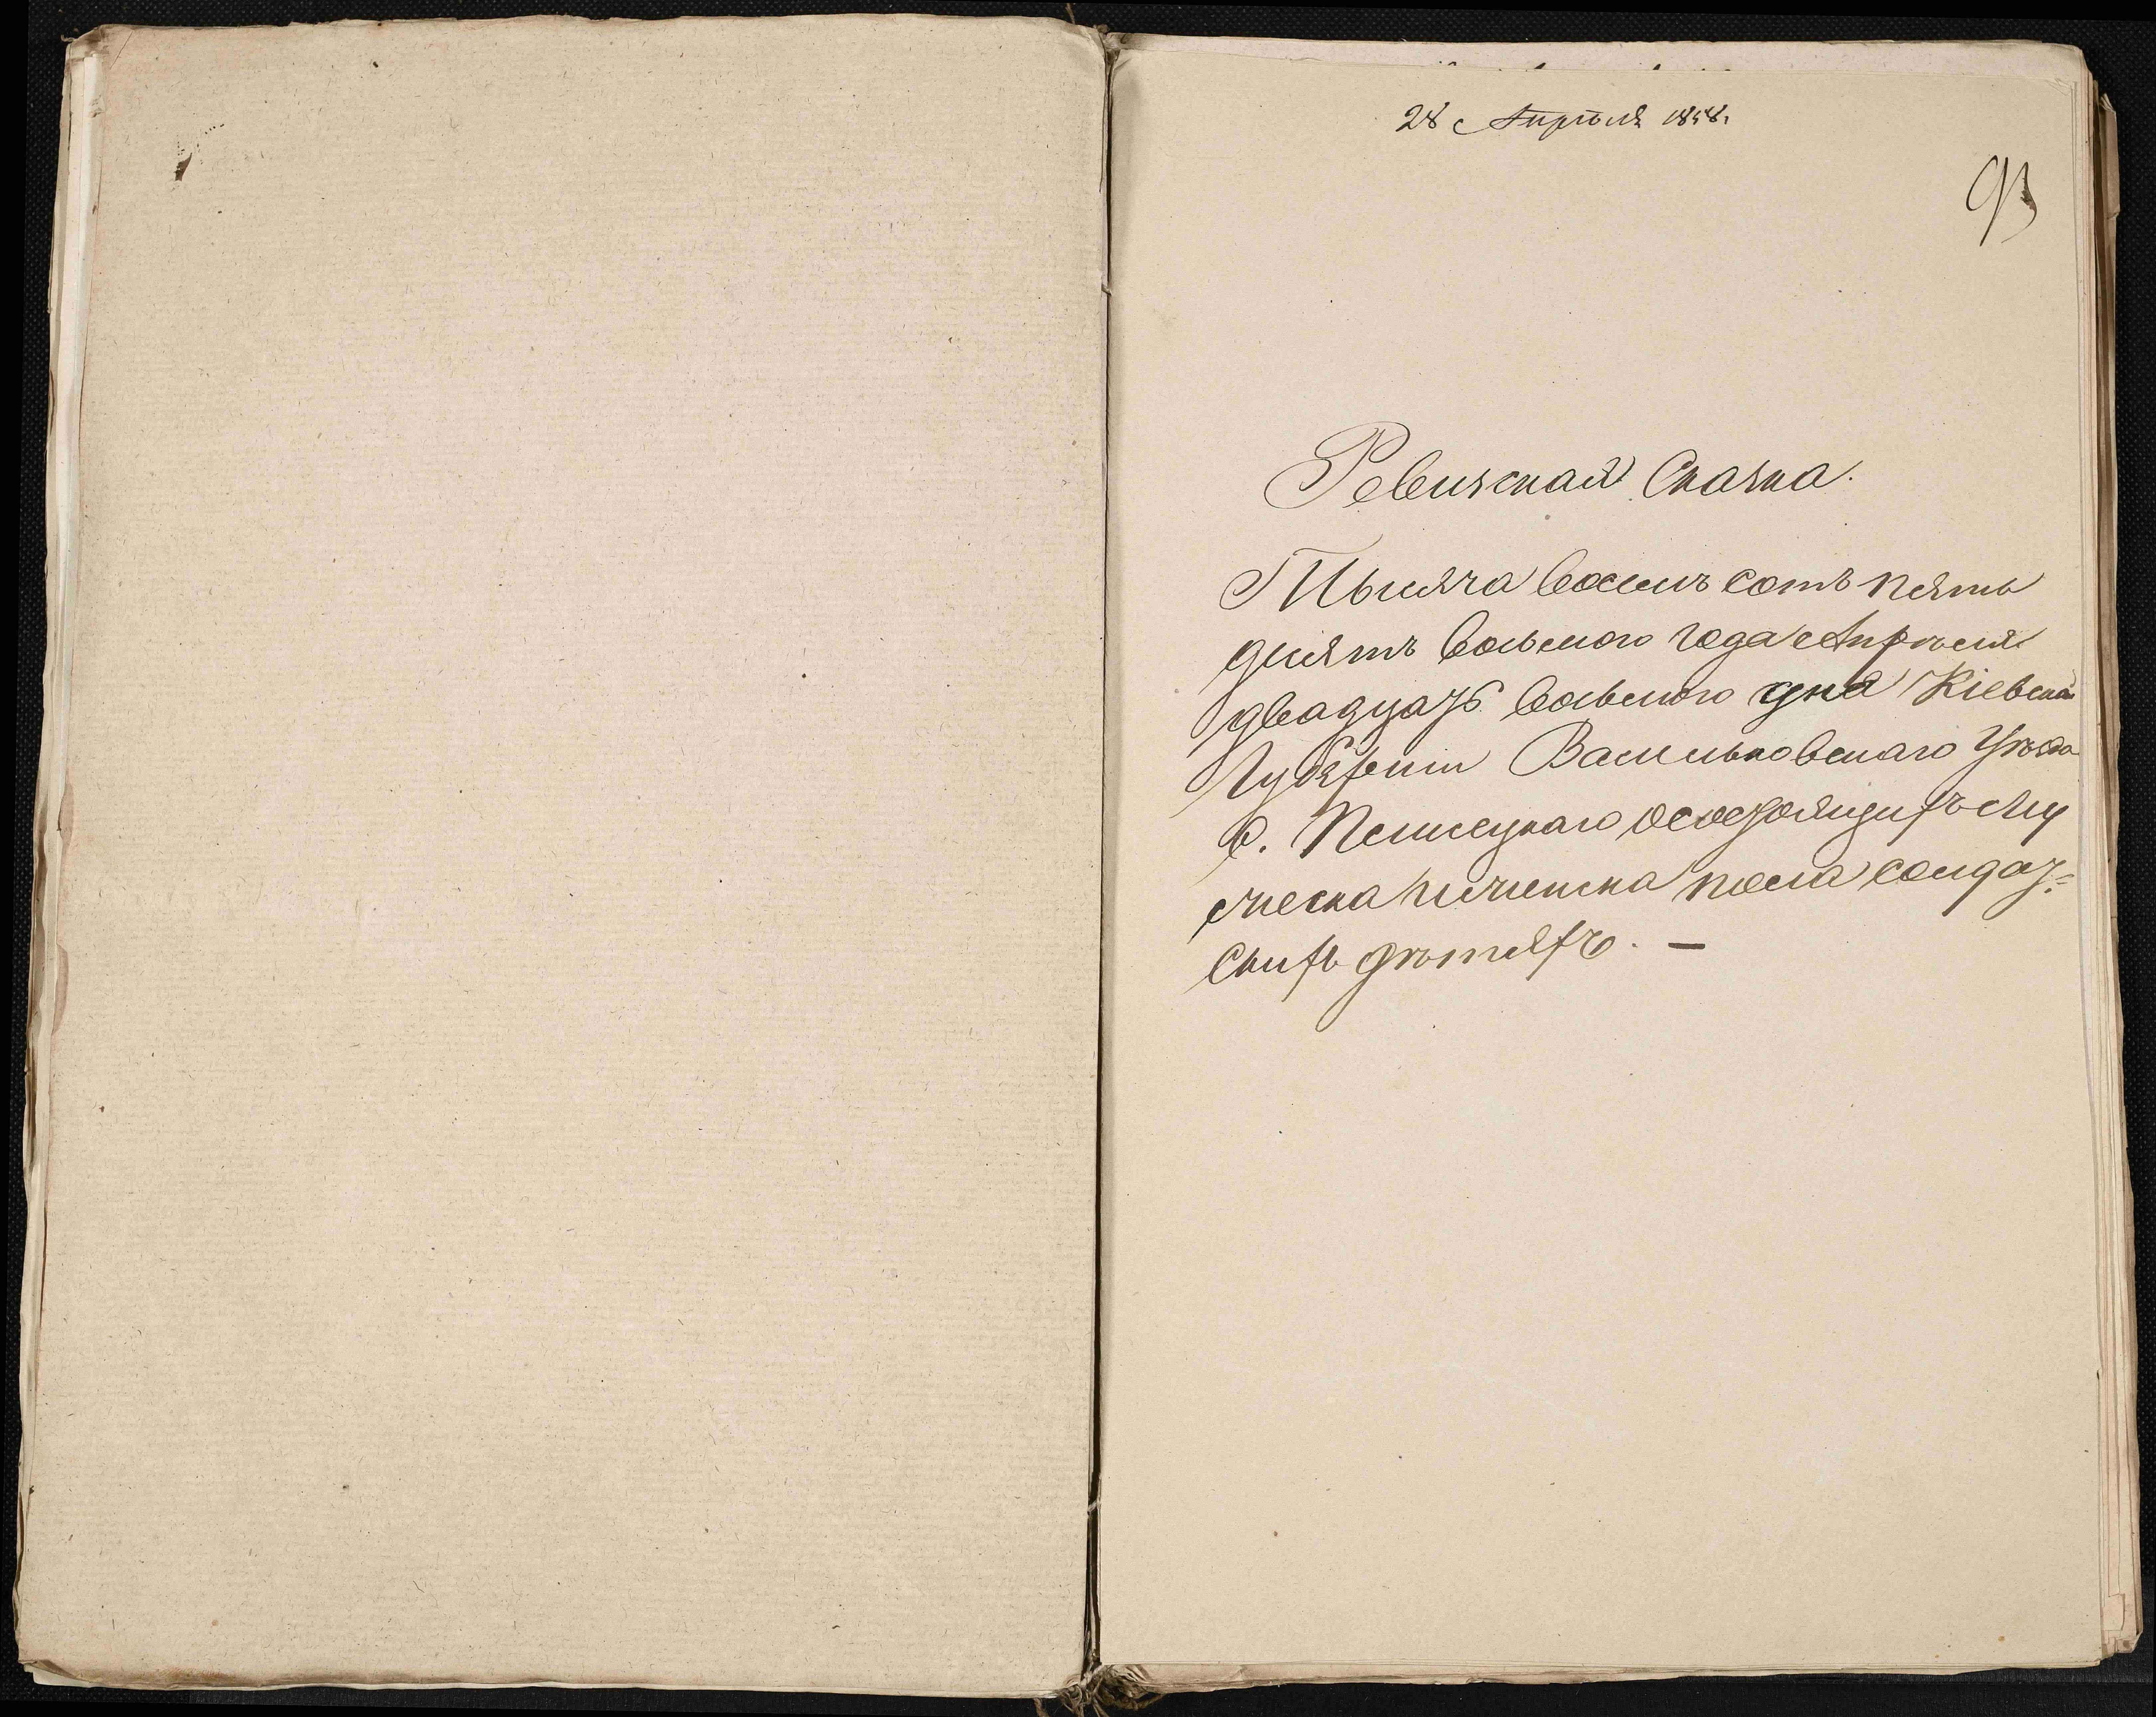 28 Апрѣля 1858.
93
Ревизская Сказка.
Тысяча восемъ сотъ пять
десятъ восьмого года Апрѣля
двадцать восьмого дня Кіевской
Губерніи Васильковскаго Уѣзда
о состоящихъ му
жеска женска пола солдат=
скихъ дѣтяхъ. —